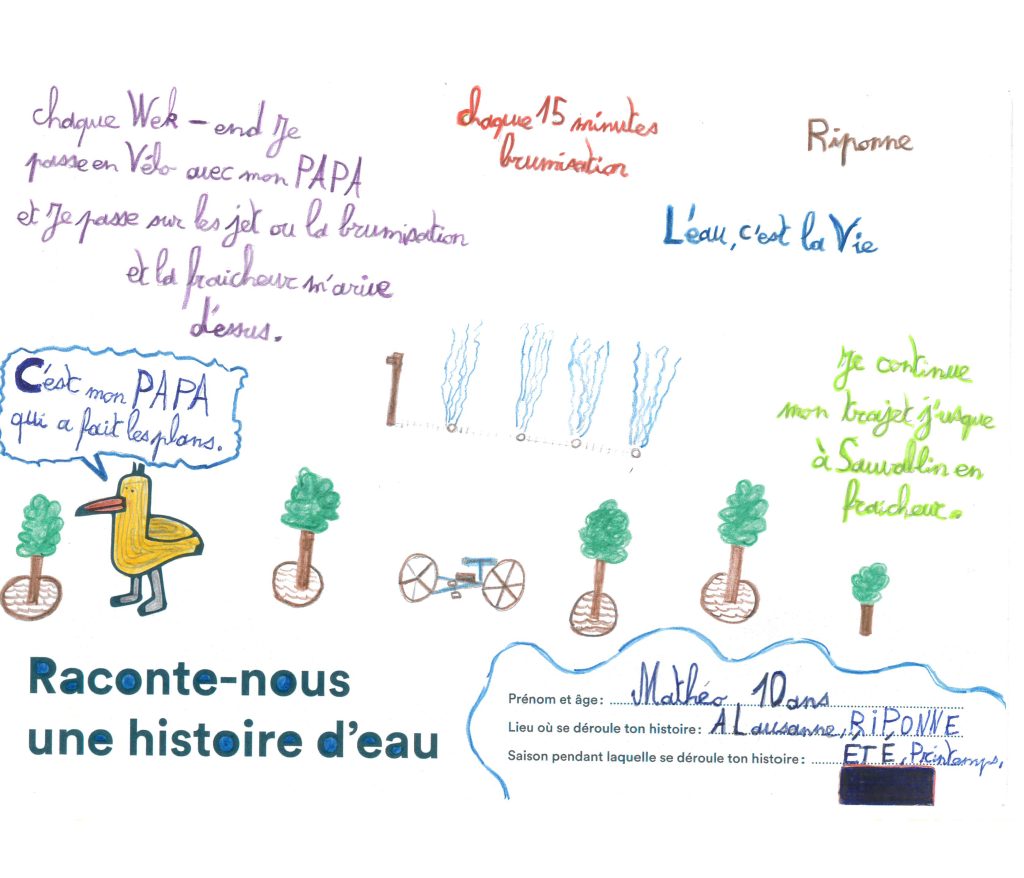 chaque Wek - end Je
passe en Vélo avec mon PAPA
et Je passe sur les jet ou la brumisation
et la fraicheur m'arive
d'essus.
chaque 15 minutes
brumisation
Riponne
L'eau, c'est la Vie
C'est mon PAPA
qui a fait les plans.
1
Je continue
mon trajet j'usque
à Sauvablin en
fraicheur.
Raconte-nous
une histoire d'eau
Prénom et âge : Mathéo 10 ans
Lieu où se déroule ton histoire : A Lausanne, RiPONNE
Saison pendant laquelle se déroule ton histoire : ÉTÉ, Printemps,